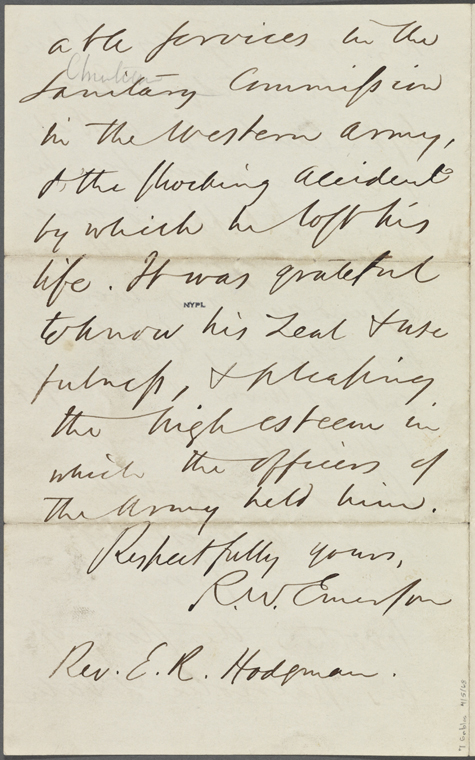 able services in the
Christian
Sanitary Commission
in the Western Army,
& the shocking accident
by which he lost his
life. It was grateful
NYPL
to know his zeal & use
fulness, & pleasing
the high esteem in
which the officers of
the Army held him.
Respectfully yours,
R. W. Emerson
Rev. E. R. Hodgman.